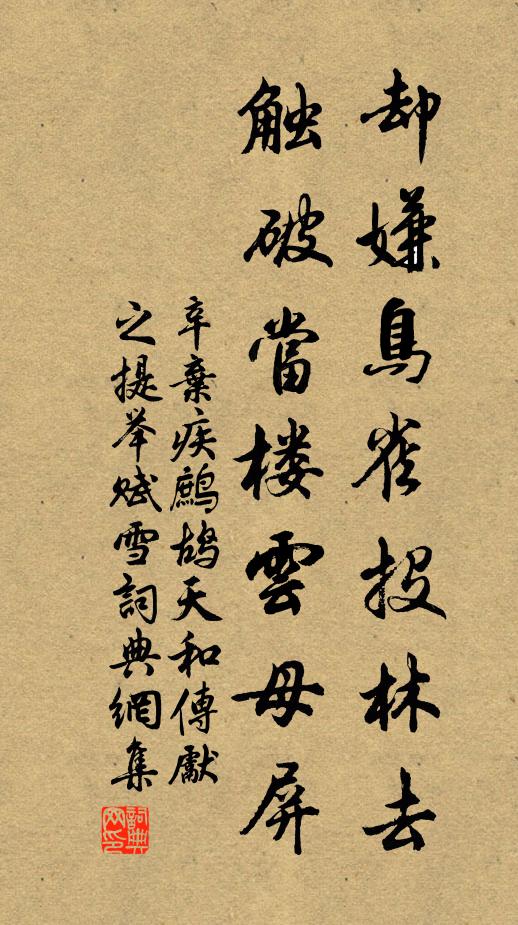 却嫌鳥雀投林去
触破當楼雲母屏
辛棄疾鷓鴣天和傳獻
之提举赋雪詞典網集
詞典网印